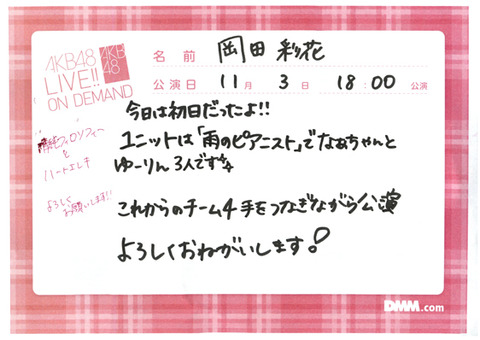 AKB48
LIVE!!
ON DEMAND
AKB
48
名前 岡田彩花
公演日 11月 3日 18:00 公演
今日は初日だったよ!!
ユニットは「雨のピアニスト」でなぁちゃんと
ゆーりん3人です
清純フィロソフィー
と
ハートエレキ
よろしく
お願いします!!
これからのチーム4 手をつなぎながら公演
よろしくおねがいします!
DMM.com